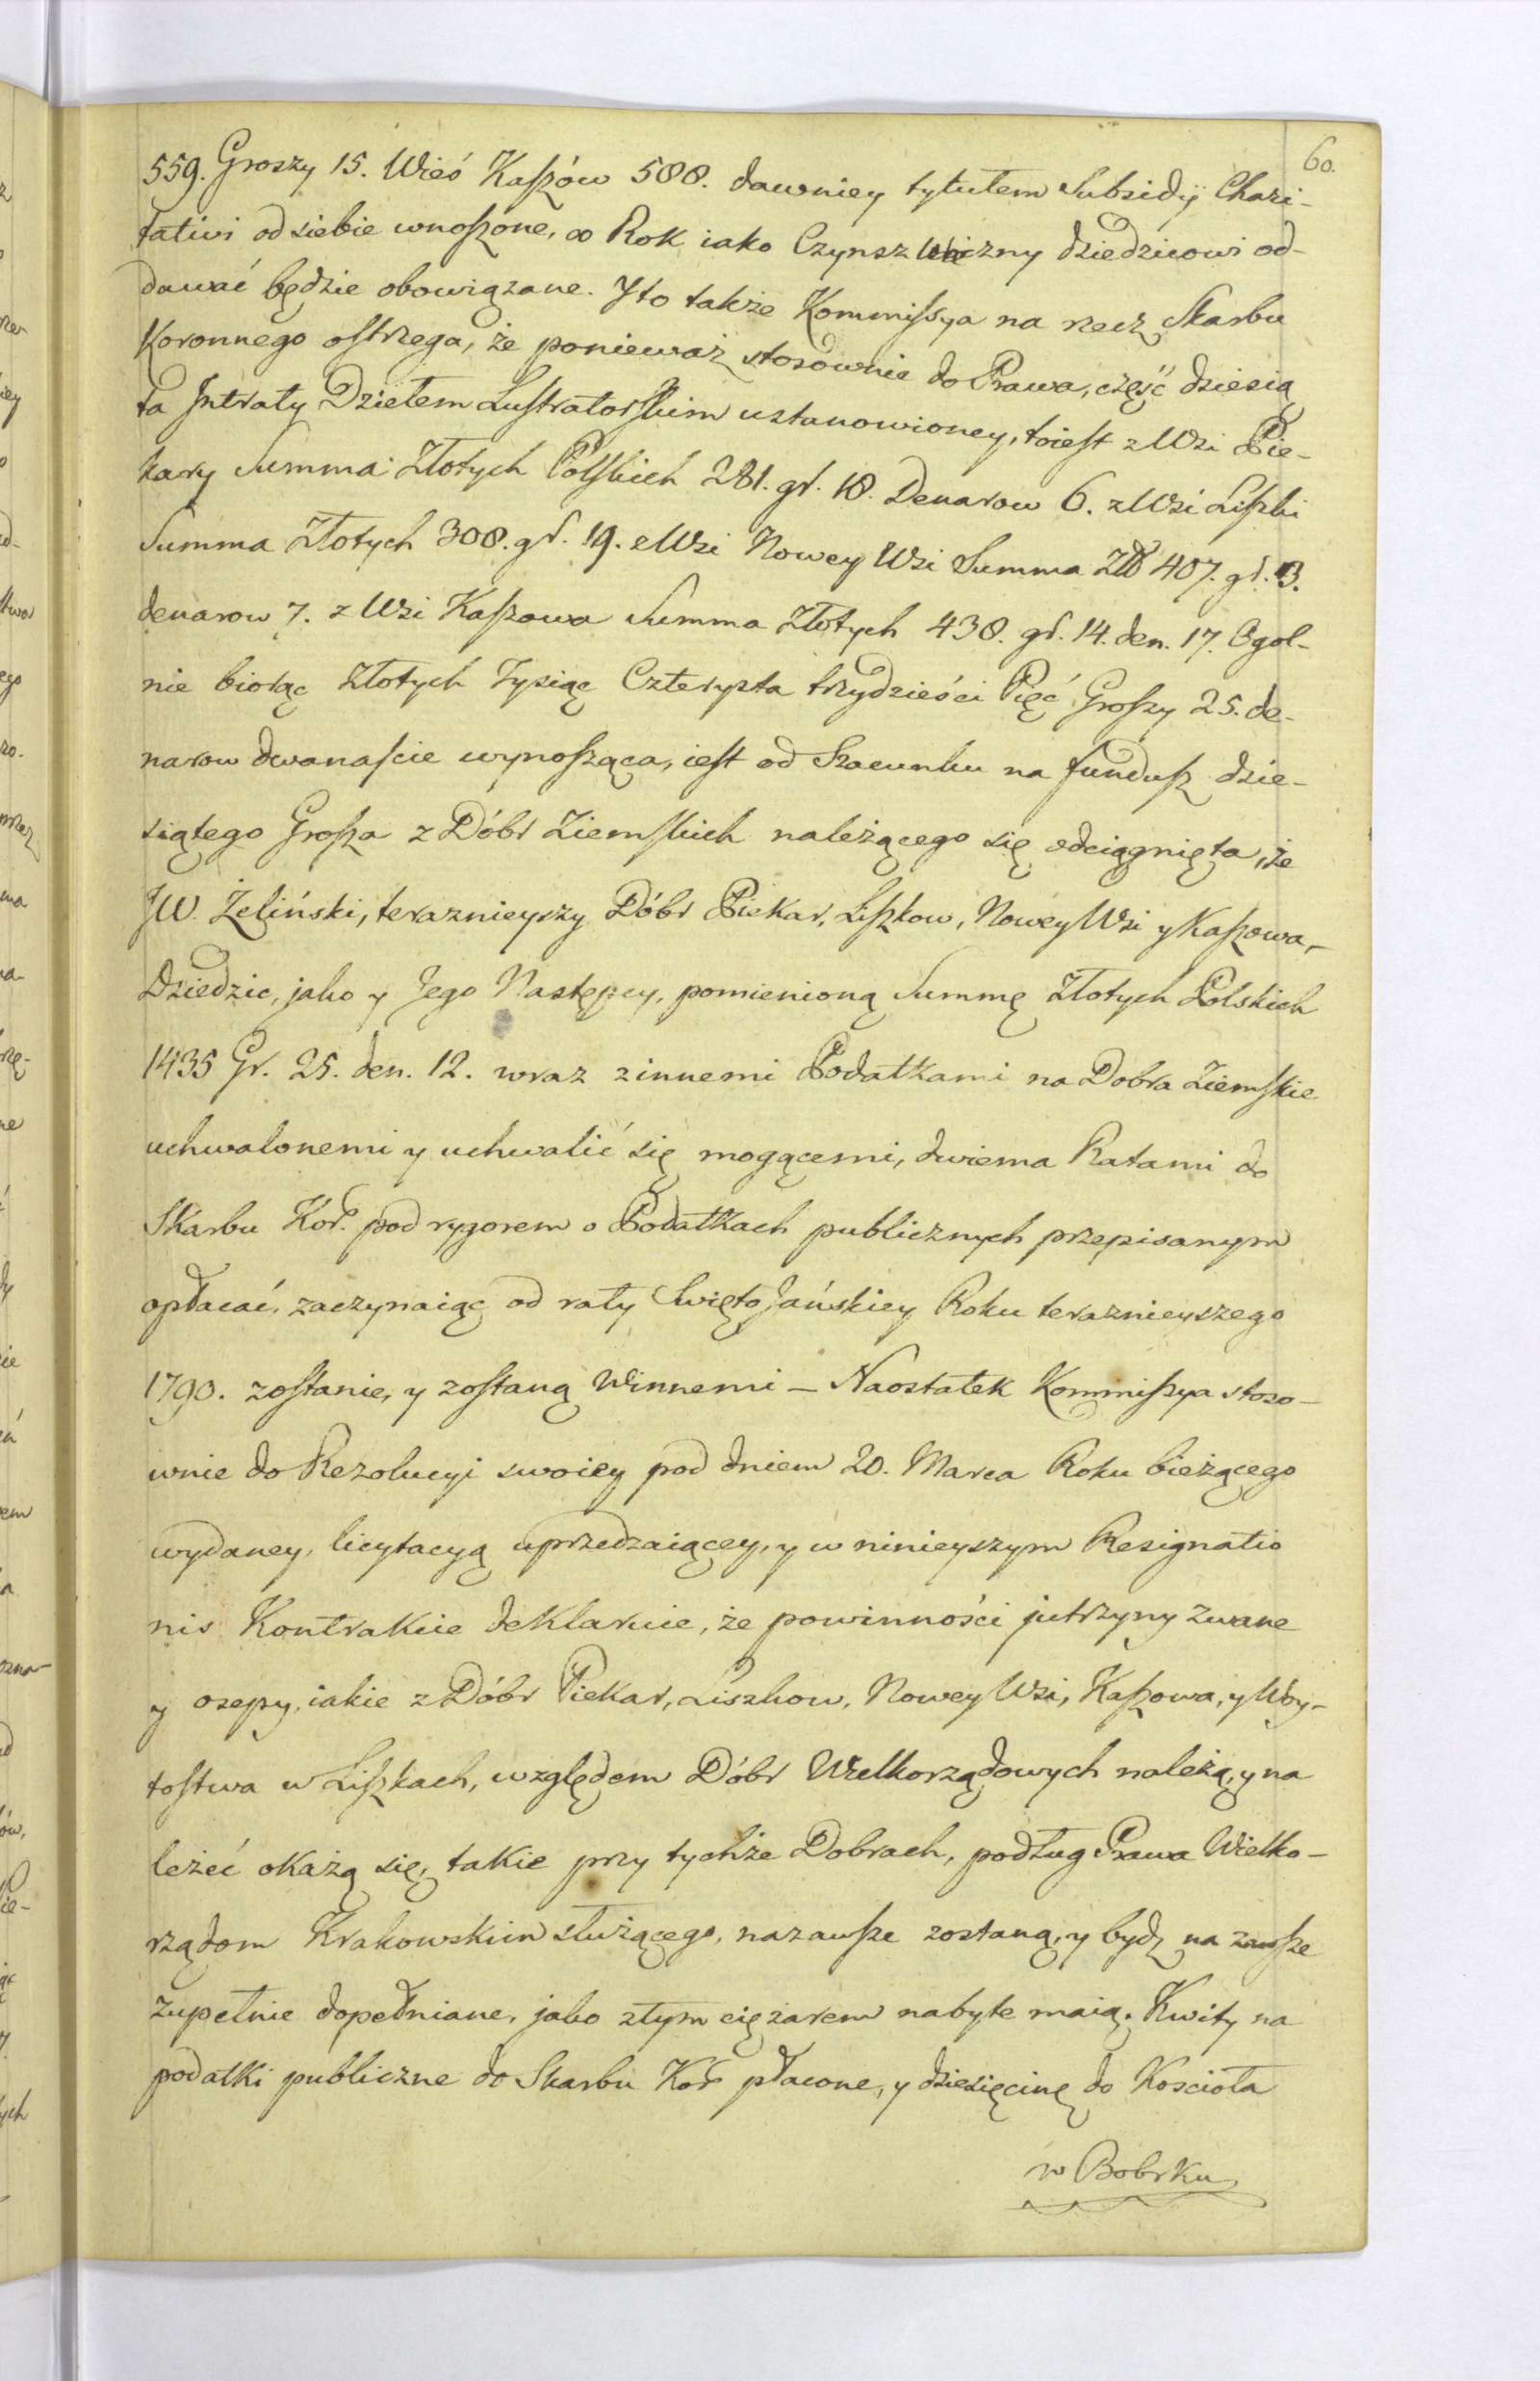 60.
559. Groszy 15. Wieś Kaszów 588. dawniey tytułem Subsidÿ Chari-
tativi od siebie wnoszone, co Rok iako Czynsz dziedzicowi od-
dawać będzie obowiązane. Y to także Kommissya na rzecz Skarbu
Koronnego ostrzega, że ponieważ stosownie do Prawa, część dziesią
ta Intraty Dziełem Lustratorskim ustanowioney, toiest z Wsi Pie-
kary Summa Złotych Polskich 281. gr. 18. Denarow 6. z Wsi Liszki
Summa Złotych 308. gr. 19. z Wsi Nowey Wsi Summa Zł 407. gr. 3.
denarow 7. z Wsi Kaszowa Summa Złotych 438. gr. 14. den. 17. Ogol-
nie biorąc Złotych Tysiąc Czterysta trzydzieści Pięć Groszy 25. de-
narow dwanaście wynosząca, iest od Szacunku na fundusz dzie-
siątego Grosza z Dóbr Ziemskich należącego się odciągnięta, że
JW. Żeliński, teraznieyszy Dóbr Piekar, Liszkow, Nowey Wsi y Kaszowa,-
Dziedzic, jako y Jego Następcy, pomienioną Summę Złotych Polskich
1435 Gr. 25. den. 12. wraz z innemi Podatkami na Dobra Ziemskie
uchwalonemi y uchwalić się mogącemi, dwiema Ratami do
Skarbu Kor. pod rygorem o Podatkach publicznych przepisanym
opłacać, zaczynaiąc od raty Święto Jańskiey Roku teraznieyszego
1790. zostanie, y zostaną Winnemi – Naostatek Kommissya stoso-
wnie do Rezolucyi swoiey pod dniem 20. Marca Roku bieżącego
wydaney, licytacyą uprzedzaiącey, y w ninieyszym Resignatio
nis Kontrakcie deklaruie, że powinności jutrzyny zwane
y osepy, iakie z Dóbr Piekar, Liszkow, Nowey Wsi, Kaszowa, y Woy-
tostwa w Liszkach, względem Dóbr Wielkorządowych należą, y na
leżeć okażą się, takie przy tychże Dobrach, podług Prawa Wielko-
rządom Krakowskim służącego, nazawsze zostaną, y bydź na zawsze
zupełnie dopełniane, jako z tym ciężarem nabyte maią. Kwity na
podatki publiczne do Skarbu Kor. płacone, y dziesięcinę do Kościoła
w Bobrku